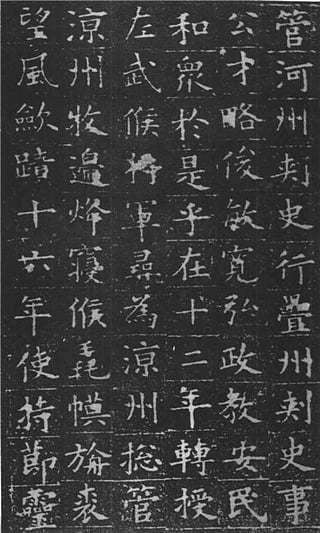 管河州刺史行疊州刺史事
公才略俊敏寬弘政教安民
和衆於是乎在十二年轉授
左武候將軍尋為涼州揔管
涼州牧邉烽寢候毳幙旃裘
望風歛蹟十六年使持節靈